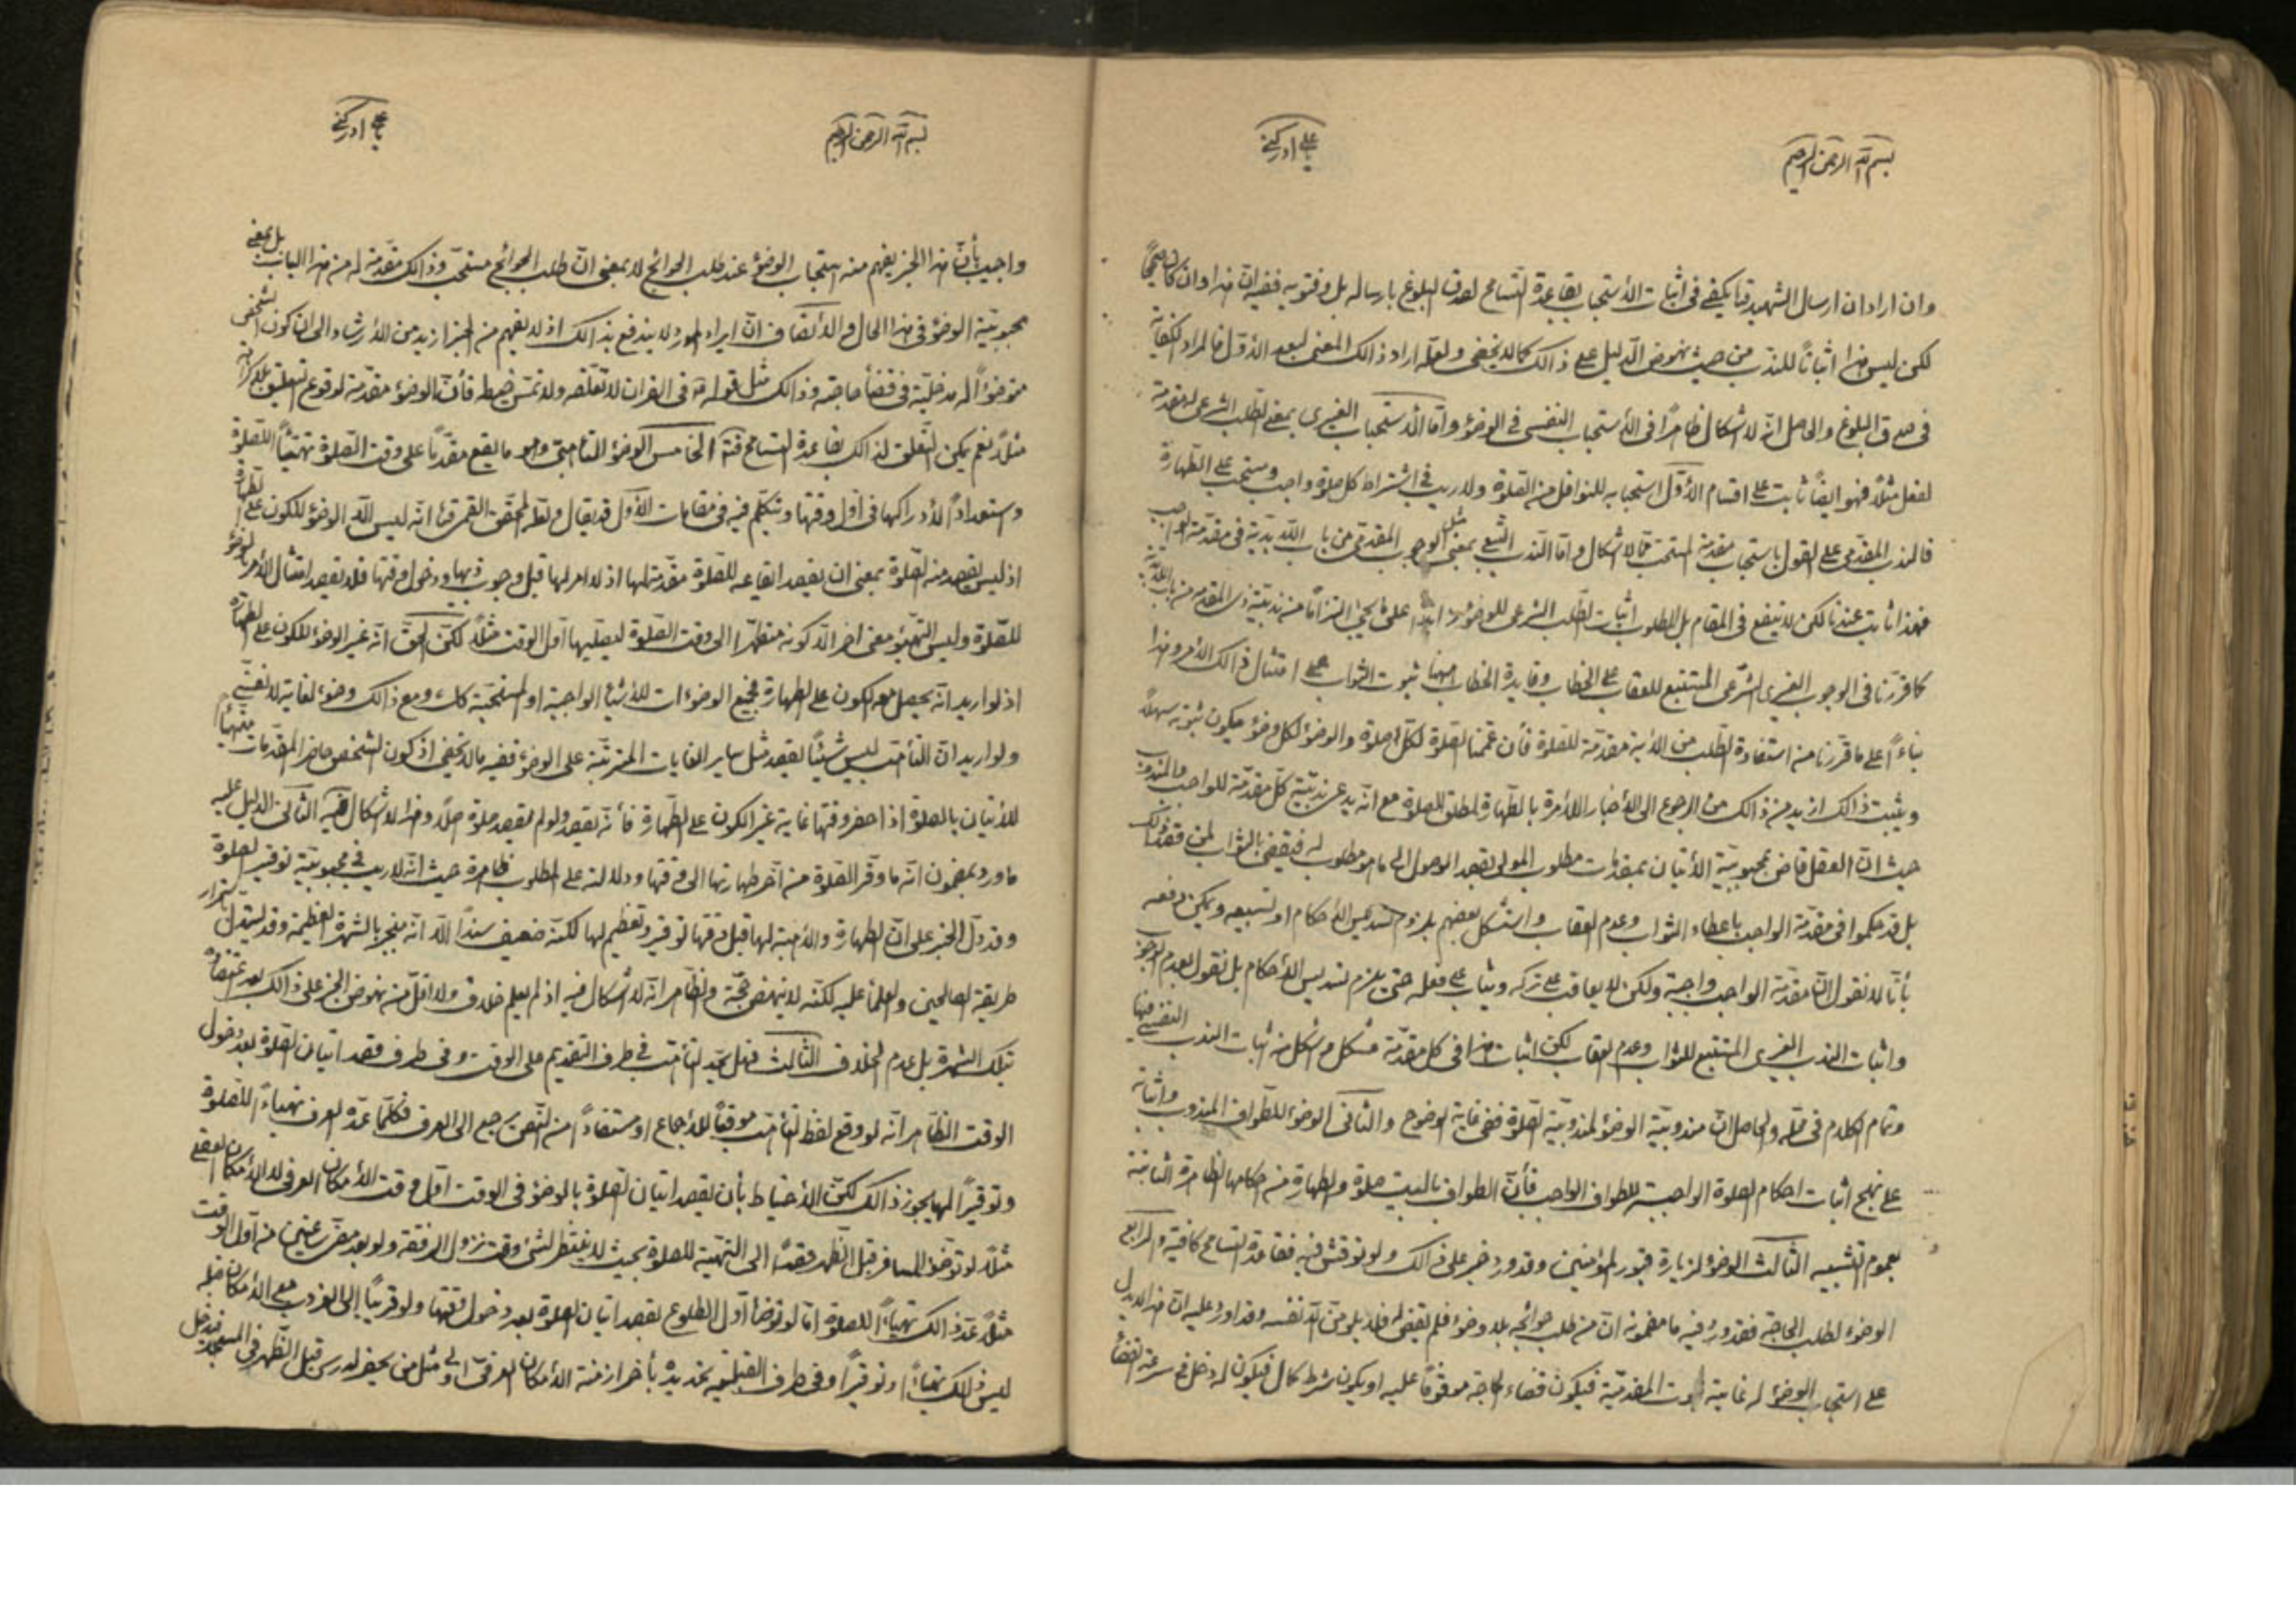 بسم الله الرحمن الرحيم
يا علي ادركني
وان اراد ان ارسال الشهيد قد يكفي في اثبات الأستحباب بقاعدة التسامح لصدق البلوغ بارساله بل وفتويه ففيه انّ هذا وان كان صحيحاً
لكن ليس هذا اثباتاً للندب من حيث نهوض الدليل على ذالك كما لا يخفى ولعلّه اراد ذالك المعنى لبعد الأوّل فالمراد الكفاية
في صدق البلوغ والحاصل انّه لا اشكال ظاهراً في الأستحباب النفسي في الوضوء وامّا الأستحباب الغيري بمعنى الطلب الشرعي لمقدمة
لفعل مثلاً فهو ايضاً ثابت على اقسام الأوّل استحبابه للنوافل من الصلوة ولا ريب في اشتراط كل صلوة واجب ومستحب على الطهارة
فالندب المقدمي على القول باستحباب مقدمة المستحب ممّا لا اشكال وامّا الندب التبعي بمعنى مثل الوجوب المقدمي من باب اللابدية في مقدمة الواجب
فهو ثابت عندنا لكن لا ينفع في المقام بل المطلوب اثبات الطلب الشرعي للوضوء
كما قررنا في الوجوب الغيري الشرعي المستتبع للعقاب على الخطاب وفايدة الخطاب هيهنا ثبوت الثواب على امتثال ذالك الأمر وهذا
بناءً على ما قررنا من استفادة الطلب من الأية مقدمة للصلوة فأن عممنا الصلوة لكل صلوة والوضوء لكل وضوء فيكون ثبوته سهلاً
ويثبت ذالك ازيد من ذالك من الرجوع الى الأخبار الأمرة بالطهارة لمطلق الصلوة مع انّه يدعى ندبيّة كلّ مقدمة للواجب والمندوب
حيث انّ العقل قاض بمحبوبية الأتيان بمقدمات مطلوب المولى بقصد الوصول الى ما هو مطلوب له فيقضي بالثواب لمن قصد ذالك
بل قد حكموا في مقدمة الواجب باعطاء الثواب وعدم العقاب واستشكل بعضهم بلزوم تسديس الأحكام او تسبيعه ويمكن دفعه
بأنّا لا نقول انّ مقدمة الواجب واجبة ولكن لا يعاقب على تركه ويثاب على فعله حتى يلزم تسديس الأحكام بل نقول بعدم الوجوب
واثبات الندب الغيري المستتبع للثواب وعدم العقاب لكن اثبات هذا في كل مقدمة مشكل واشكل منه اثبات الندب النفسي فيها
وتمام الكلام في محلّه والحاصل انّ مندوبيّة الوضوء لمندوبيّة الصلوة ففي غاية الوضوح والثاني الوضوء للطواف المندوب واثباته
على نهج اثبات احكام الصلوة الواجبة للطواف الواجب فأنّ الطواف بالبيت صلوة والطهارة من احكامها الظاهرة الثابتة
بعموم التشبيه الثالث الوضوء لزيارة قبور المؤمنين وقد ورد خبر على ذالك ولو نوقش فيه فقاعدة التسامح كافية والرابع
الوضوء لطلب الحاجة فقد ورد فيه ما مضمونه ان من طلب حوائجه بلا وضوء فلم يقض له فلا يلومنّ الّا نفسه وقد اورد عليه انّ هذا لا يدل
على استحباب الوضوء له غاية ثبوت المقدميّة فيكون قضاء الحاجة موقوفاً عليه او يكون شرط كمال فيكون له دخل في سرعة القضاء
بسم الله الرحمن الرحيم
يا علي ادركني
واجيب بأنّ هذا الخبر يفهم منه استحباب الوضوء عند طلب الحوائج لا بمعنى انّ طلب الحوائج مستحب وذالك مقدّمة له من هذا الباب بل بمعنى
محبوبيّة الوضوء في هذا الحال والأنصاف انّ ايراد المورد لا يندفع بذالك اذ لا يفهم من الخبر ازيد من الأرشاد الى ان كون الشخص
متوضّؤاً له مدخليّة في قضاء حاجته وذالك مثل قوله في القران لا تعلّقه ولا تمس خيطه فأنّ الوضوء مقدّمة لوقوع التعليق بلا كراهة
مثلاً نعم يمكن التعلق لذالك بقاعدة التسامح فتـﻪ الخامس الوضوء التأهبي وهو ما يقع مقدّماً على وقت الصلوة تهيّئاً للصلوة
واستعداداً لأدراكها في اوّل وقتها ونتكلّم فيه في مقامات الأوّل قد يقال ولعله المحقّق القمّي قدّه انّه ليس الّا الوضوء للكون على الطهارة
اذ ليس يقصد منه الصلوة بمعنى ان يقصد ايقاعه للصلوة مقدّمة لها اذ لا امر لها قبل وجوب ذيها ودخول وقتها فلا يقصد امتثال الأمر بالوضوء
للصلوة وليس التهيّؤ معنى اخر الّا كونه متطهّراً الى وقت الصلوة ليصلّيها اوّل الوقت مثلاً لكن الحقّ انّه غير الوضوء للكون على الطهارة
اذ لو اريد انّه يحصل معه الكون على الطهارة فجميع الوضوءات للأشياء الواجبة او المستحبّة كك ومع ذالك وضوء لغاية لا نفسيّ
ولو اريد انّ التأهّب ليس شيئاً يقصد مثل ساير الغايات المترتّبة على الوضوء ففيه ما لا يخفى اذ كون الشخص حاضر المقدّمات متهيّأ
للأتيان بالصلوة اذا حضر وقتها غاية غير الكون على الطهارة فأنّه يقصد ولو لم يقصد صلوة اصلاً وهذا لا اشكال فيه الثاني الدليل عليه
ما ورد بمضمون انّه ما وقّر الصلوة من اخّر طهارتها الى وقتها ودلالته على المطلوب ظاهرة حيث انّه لا ريب في محبوبيّة توقير الصلوة
وقد دلّ الخبر على انّ الطهارة والأهبة لها قبل وقتها توقير وتعظيم لها لكنّه ضعيف سنداً الّا انّه منجبر بالشهرة العظيمة وقد يستدل باستقرار
طريقة الصالحين والعلماء عليه لكنّه لا ينهض حجّة والظاهر انّه لا اشكال فيه اذ لم يعلم خلاف ولا اقلّ من نهوض الخبر على ذالك بعد اعتضاده
بتلك الشهرة بل عدم الخلاف الثالث فهل يحدّ التأهّب في طرف التقديم على الوقت وفي طرف قصد اتيان الصلوة بعد دخول
الوقت الظاهر انّه لو وقع لفظ التأهّب موقعاً للأجماع او مستفاداً من النّص يرجع الى العرف فكلّما عدّه العرف تهيّاءً للصلوة
وتوقيراً لها يجوز ذالك لكنّ الأحتياط بأن يقصد اتيان الصلوة بالوضوء في الوقت اوّل وقت الأمكان العرفي لا الأمكان العقلي
مثلاً لو توضّأ المسافر قبل الظهر قصداً الى التهيّة للصلوة بحيث لا ينتظر لشئ وقت نزول الرفقة ولو بعد مضيّ ساعتين من اوّل الوقت
مثلاً عدّ ذالك تهيّاءً للصلوة امّا لو توضّأ اوّل الطلوع بقصد اتيان الصلوة بعد دخول وقتها ولو قريباً إلى الغروب مع الأمكان قبله
ليس ذلك تهيّاءً او توقيراً وفي طرف القبليّة تحديده بأخر ازمنة الأمكان العرفي اولى مثل من يحضر لدرس قبل الظهر في المسجد فيدخل